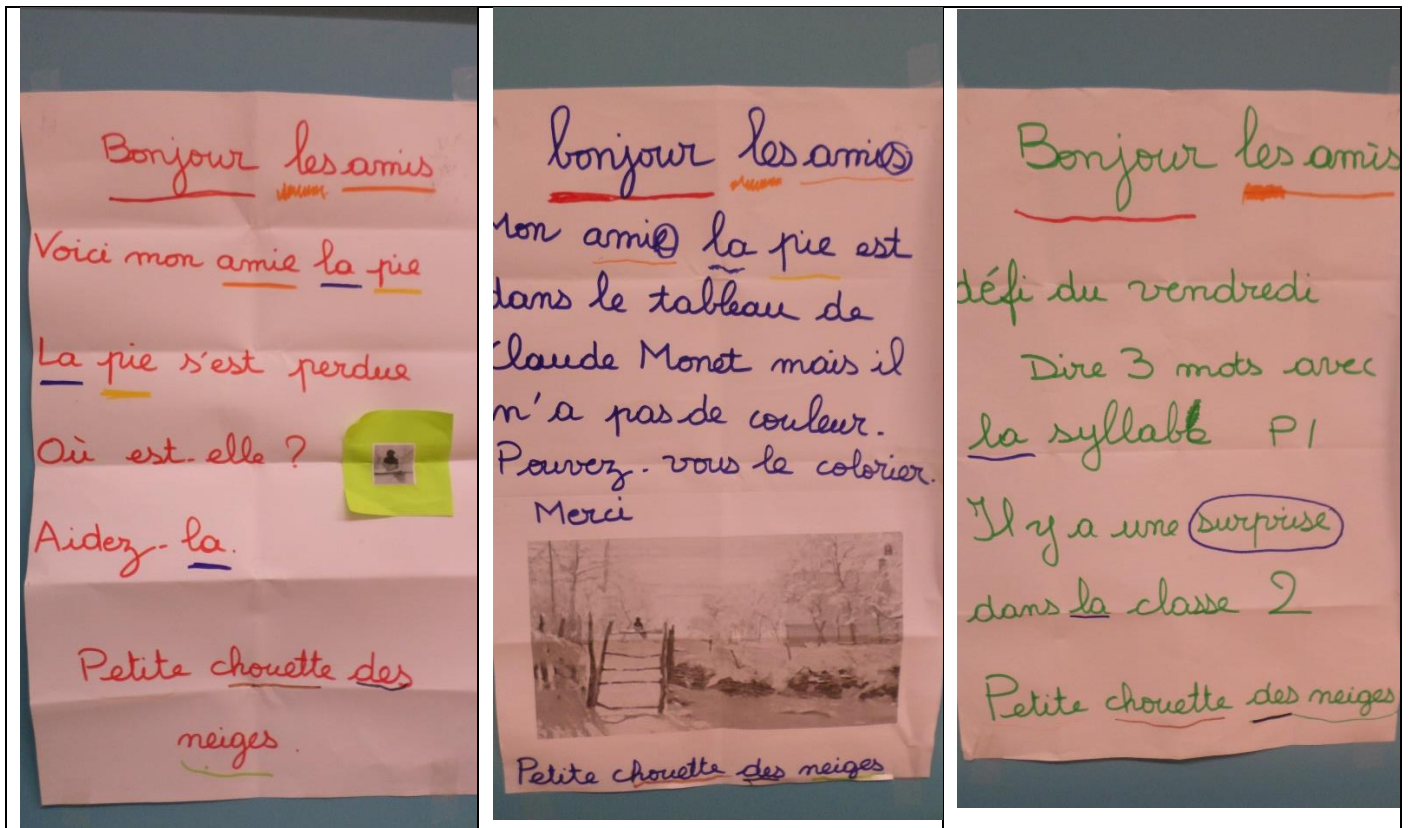 Bonjour les amis
Voici mon amie la pie
La pie s'est perdue
Où est-elle ?
Aidez-la.
Petite chouette des
neiges.
bonjour les amis
Mon amie la pie est
dans le tableau de
Claude Monet mais il
n'a pas de couleur.
Pouvez-vous le colorier.
Merci
Petite chouette des neiges
Bonjour les amis
défi du vendredi
Dire 3 mots avec
la syllabe PI
Il y a une surprise
dans la classe 2
Petite chouette des neiges